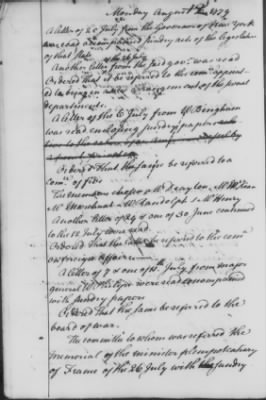 Monday August 2 1779
A letter of 20 July from the Governor of New York
was read accompanied sundry acts of the legislature
of that State
Another letter from the said gov. was read
Ordered That it be referred to the com. appoint
ed to bring in arrangement of the post
department
A letter of the 6 July from W Bingham
was read enclosing sundry papers
Ordered That the same be referred to a
com. of five
The members chosen Mr Drayton, Mr McKean
Mr Marchant Mr Randolph & Mr Henry
Another letter of 24 & one of 30 June continued
to the 12 July were read
Ordered That the letters be referred to the com.
on foreign affairs
A letter of 7 & one of July from major
general W Philips were read accompanied
with sundry papers
Ordered That the same be referred to the
board of war.
The committee to whom was referred the
memorial of the minister plenipotentiary
of France of the 26 July with the sundry